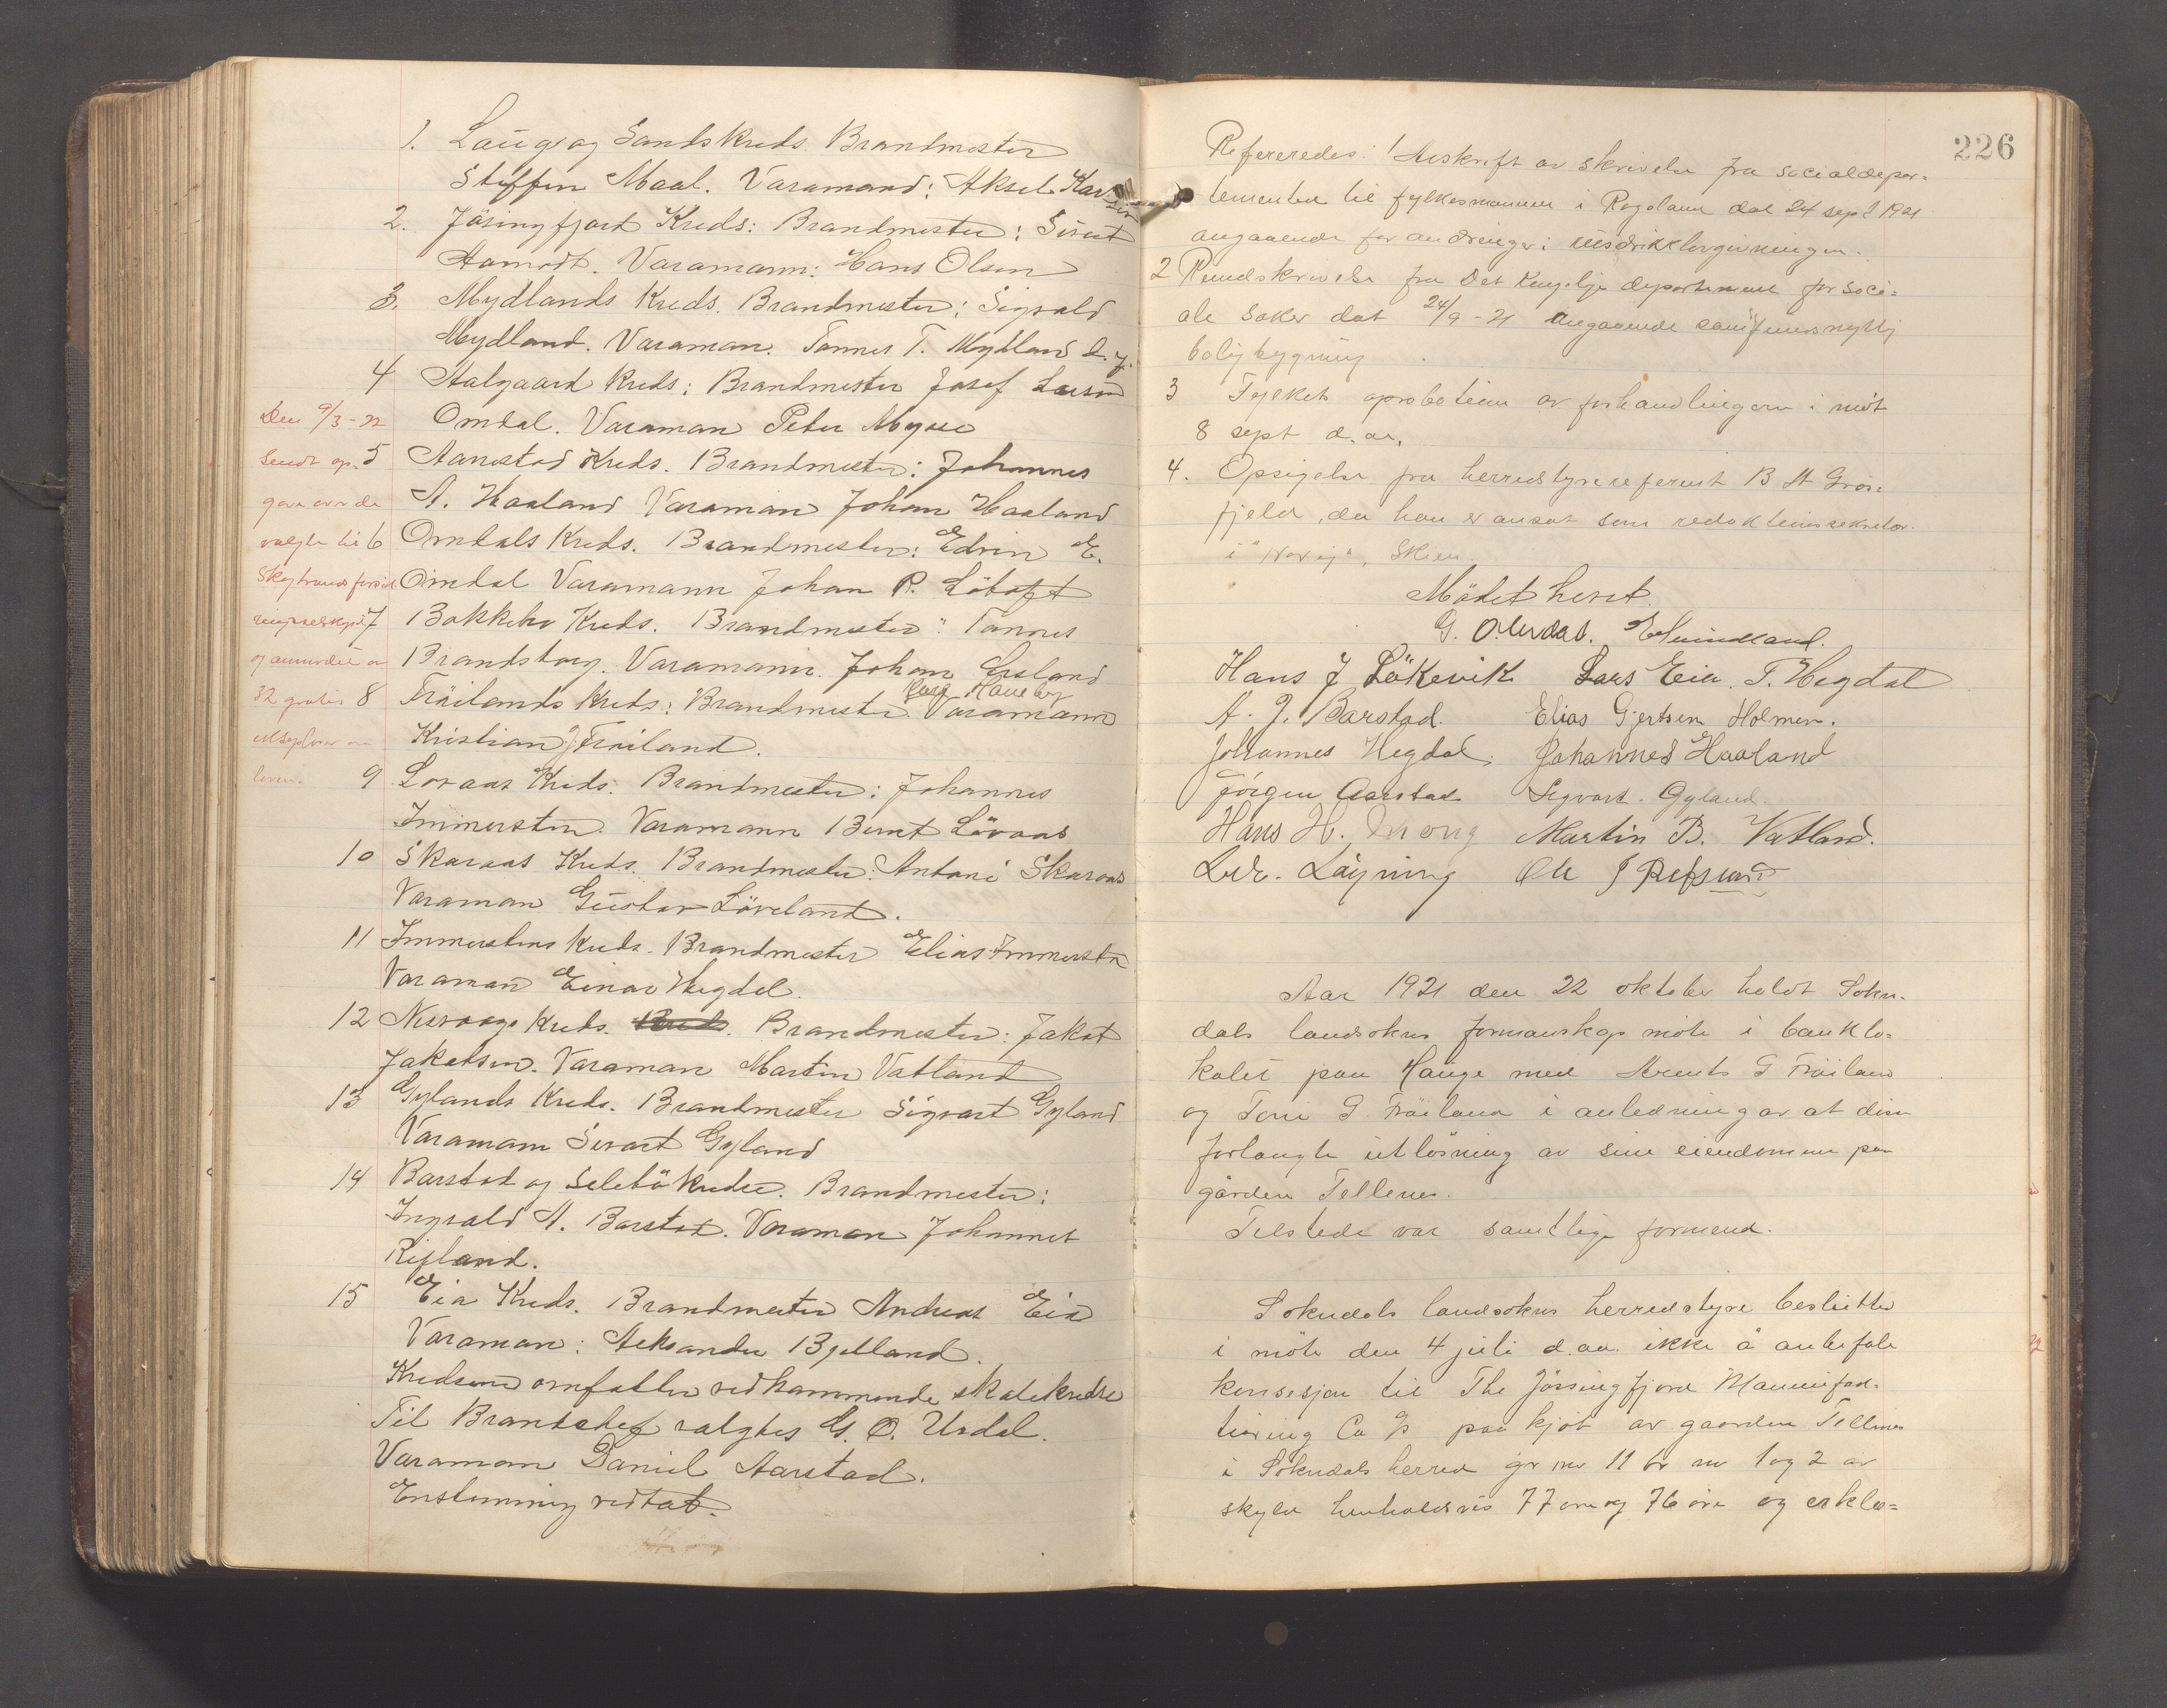 1. Haugs og Sands Kreds. Brandmester
Steffen Maal. Varamand: Aksel Karlsen
2. Jösingfjord Kreds: Brandmester: Sivert
Aamodt. Varamann: Hans Olsen
3. Mydlands Kreds. Brandmester: Sigvald
Mydland. Varaman. Tønnes T. Mydland d.y.
4 Aalgaard Kreds: Brandmester Josef Larsen
Omdal. Varaman Peter Mysse
5 Aanestad Kreds. Brandmester: Johannes
A. Haaland Varaman Johan Haaland
6 Omdals Kreds. Brandmester: Edvin E.
Omdal Varamann Johan R. Løtoft
7 Bakkebø Kreds. Brandmester: Tønnes
Brandsberg. Varamann. Johan Eesland
8 Fröilands Kreds: Brandmester Varamann
Kristian J. Fröiland.
9 Lovaas Kreds. Brandmester: Johannes
Immersten. Varamann Bernt Lövaas
10 Skaraas Kreds. Brandmester: Antoni Skaraas
Varaman Gustav Löveland.
11 Immerstens Kreds. Brandmester Elias Immersten
Varaman Einar Hegdal.
12 Nesvaags Kreds. Kreds. Brandmester: Jakob
Jakobsen. Varaman Martin Vatland
13 Gylands Kreds. Brandmester Sigvart Gyland
Varamann Sivart Gyland
14 Barstad og Selebö Kredse. Brandmester:
Ingvald A. Barstad. Varaman Johannes
Refsland.
15 Eia Kreds. Brandmester Andreas Eia
Varaman: Aleksander Bjelland.
Kredsene omfatter vedkommende skolekredse
Til Brandchef valgtes G. O. Urdal.
Varaman Daniel Aarstad.
Enstemmig vedtat.
Den 9/3-22
sendt op-
gave over de
valgte til
Skogbrandsforsik-
ringsselskapet
og anmodet om
32 gratis
eksemplarer av
loven.
226
Refereredes: 1 Avskrift av skrivelse fra socialdepar-
tementet til fylkesmannen i Rogaland dat 24 sept 1921
angaaende forandringer i rusdriklovgivningen.
2 Rundskrivelse fra Det Kongelige departement for soci=
ale saker dat 24/9-21 angaaende samfunnsnyttig
boligbygning.
3 Fylkets aprobation av forhandlingerne i møt
8 sept d. aa.
4. Opsigelse fra herredstyrereferent B A Grøn-
fjeld, da han er ansat som redaktionssekretær
i "Norig", Skien
Mødet hevet.
G. O. Urdal. E Svindland.
Hans J Løkevik Lars Eia. T. Hegdal
A. J. Barstad. Elias Gjertsen Holmen.
Johannes Hegdal. Johannes Haaland
Jörgen Aarstad Sigvart. Gyland.
Hans H. Mong Martin B. Vatland.
Ldr. Løyning Ole J Refsland
Aar 1921 den 22 oktober holdt Sokn-
dals landsokns formanskap møte i banklo-
kalet paa Hauge med Arents G Fröiland
og Toni G. Fröiland i anledning av at disse
forlangte utløsning av sine eiendommer paa
gården Tellenes.
Tilstede var samtlige formend.
Sokndals landsokns herredstyre besluttet
i møte den 4 juli d.aa. ikke å anbefale
konsesjon til The Jøssingfjord Manufac-
turing Co A/s paa kjøb av gaarden Tellenes
i Sokndals herred gr nr 11 br nr 1 og 2 av
skyld henholdsvis 77 øre og 76 øre og erklæ=